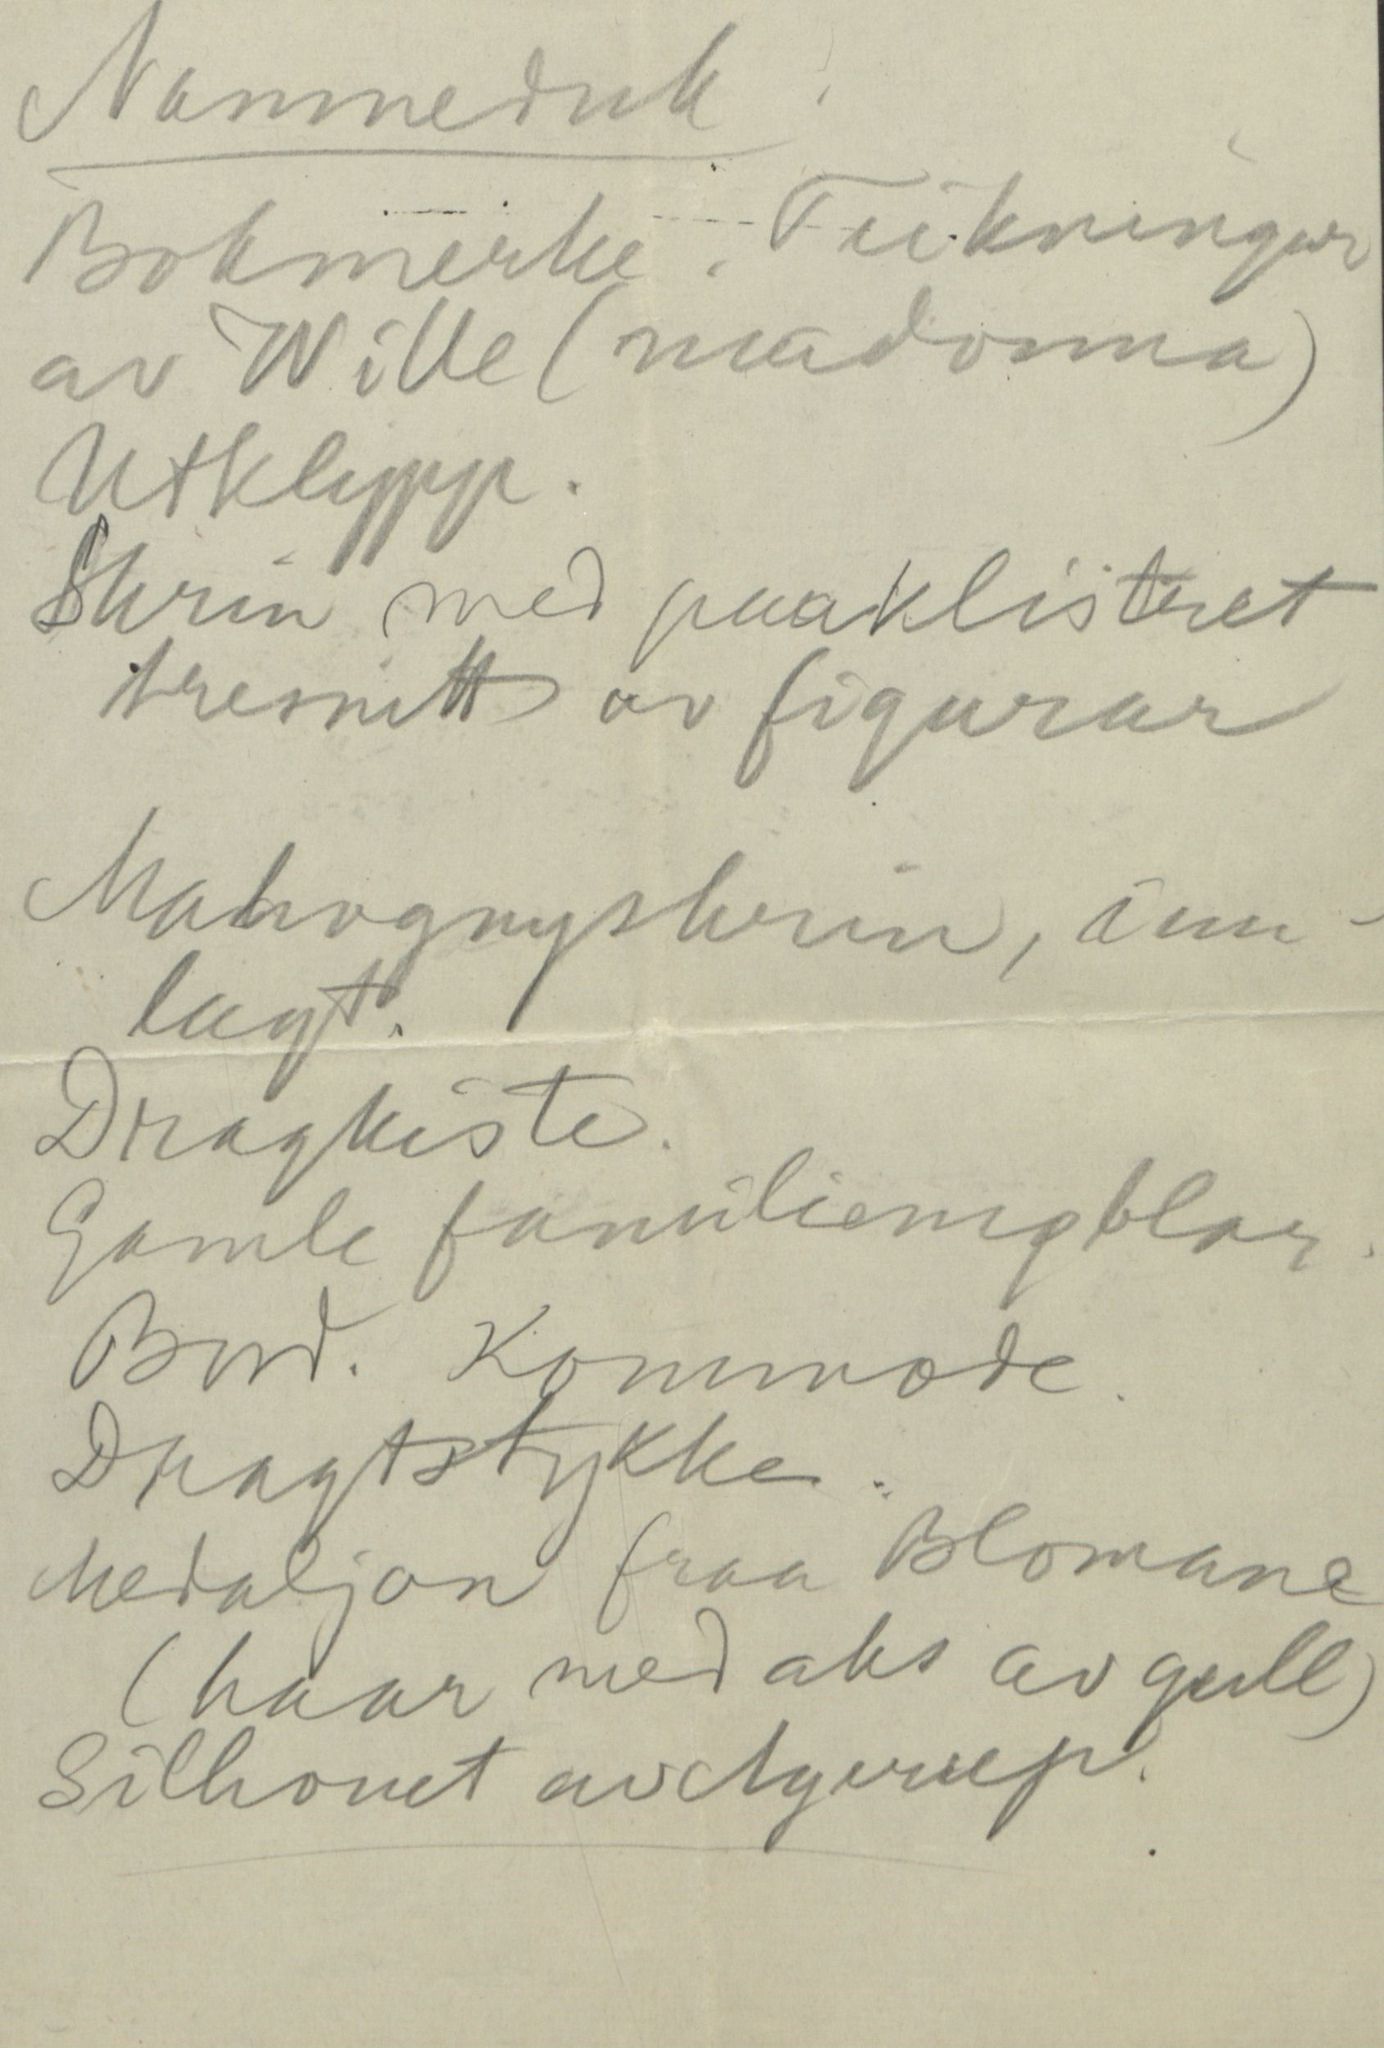 Namneduk.
Bokmerke. Teikningar
av Wille (madonna)
Utklypp.
Skrin med paaklistret
tresnitt av figurar
Mahognyskrin, inn-
lagt.
Dragkiste.
Gamle familiemøblar.
Bord. Kommode.
Dragtstykke.
Medaljon fraa Blomane
(haar med aks av gull)
Silhouet av